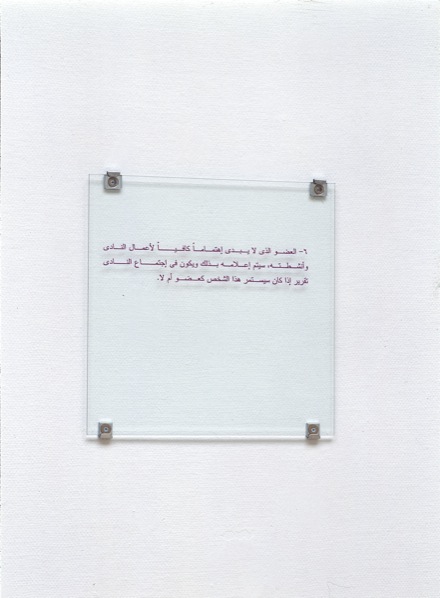 ٦- العضو الذى لا يبدى إهتماماً كافياً لأعمال النادى
وأنشطته، سيتم إعلامه بذلك ويكون فى إجتماع النادى
تقرير إذا كان سيستمر هذا الشخص كعضو أم لا.